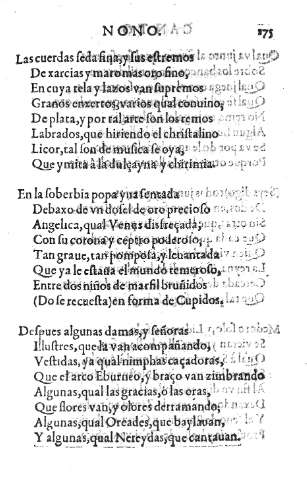 NONO. 175
Las cuerdas seda fina, y sus estremos
De xarcias y maromas oro fino,
En cuya tela y lazos van supremos
Granos enxertos, varios qual conuino,
De plata, y por tal arte son los remos
Labrados, que hiriendo el christalino
Licor, tal son de musica se oya,
Que ymita à la dulçayna y chirimia.
En la soberbia popa yua sentada
Debaxo de vn dosel de oro precioso
Angelica, qual Venus disfreçada;
Con su corona y ceptro poderoso,
Tan graue, tan pomposa, y leuantada
Que ya le estaua el mundo temeroso,
Entre dos niños de marfil bruñidos
(Do se recuesta) en forma de Cupidos.
Despues algunas damas, y señoras
Illustres, que la van acompañando,
Vestidas, ya qual nimphas caçadoras,
Que el arco Eburneo, y braço van zimbrando
Algunas, qual las gracias, ò las oras,
Que flores van, y olores derramando,
Algunas, qual Oreades, que baylauan,
Y algunas, qual Nereydas, que cantauan.